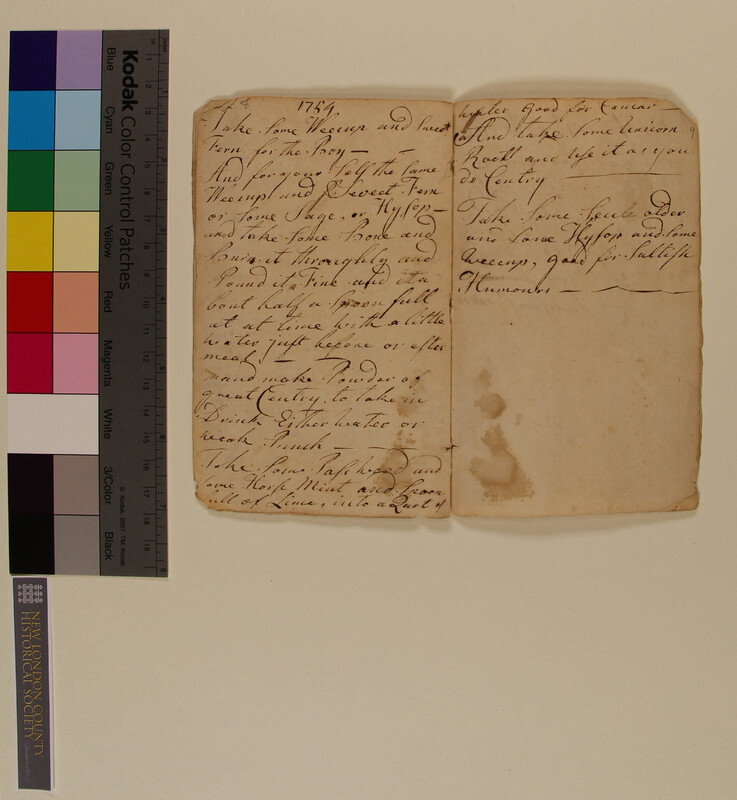 1754
Take Some Weecup and Sweet
Fern for the Boy —
And for your Self the Same
Weecup and Sweet Fern
or Some Sage, or Hysop —
and take Some Bone and
Bruis it throughly and
Pound it Fine and it a
bout half a Spoon full
at at time with a little
water just before or after
meal —
and make Powder of
great Centry, to take in
Drink Either Water or
weak Punch —
Take Some Bass wood and
Some Horse Mint and Spoon
full of Lime, into a Qust of
water good for Cancar —
And take Some Unicorn
Root and use it as you
do Centry
Take Some older
and Some Hysop and Some
Weecup, good for Saltish
Humours —
Kodak Color Control Patches
Blue
Cyan
Green
Yellow
Red
Magenta
White
3/Color
Black
© Kodak, 2007 TM: Kodak
NEW LONDON COUNTY
HISTORICAL SOCIETY